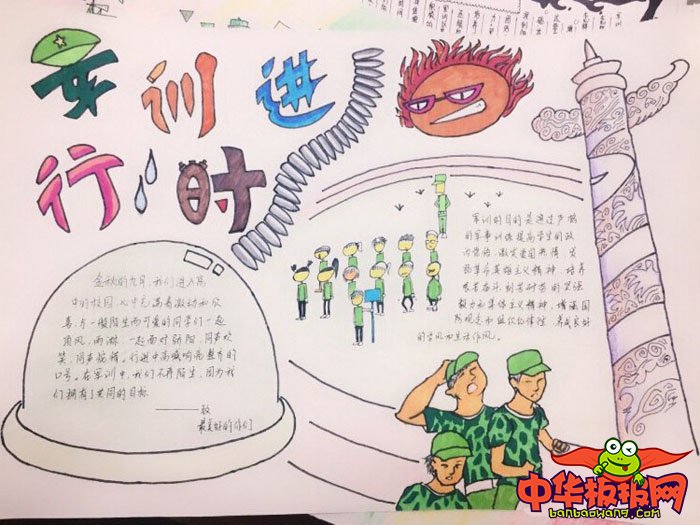 军训进
行时
金秋的九月,我们进入高
中的校园,心中充满着激动和欣
喜,与一般陌生而可爱的同学们一起
顶风,雨淋,一起面对骄阳,同声欢
笑,同声
口号。在军训中,我们不再陌生,因为我
们拥有了共同的目标
——致
最美好的你们
军训的目的是通过严格
的军事训练提高学生的政
治觉悟,激发爱国热情,发
扬革命英雄主义精神,培养
艰苦奋斗,刻苦耐劳的坚强
毅力和集体主义精神,增强国
防观念和组织纪律性,养成良好
的学风和生活作风。
中华板报网
banbaowang.com